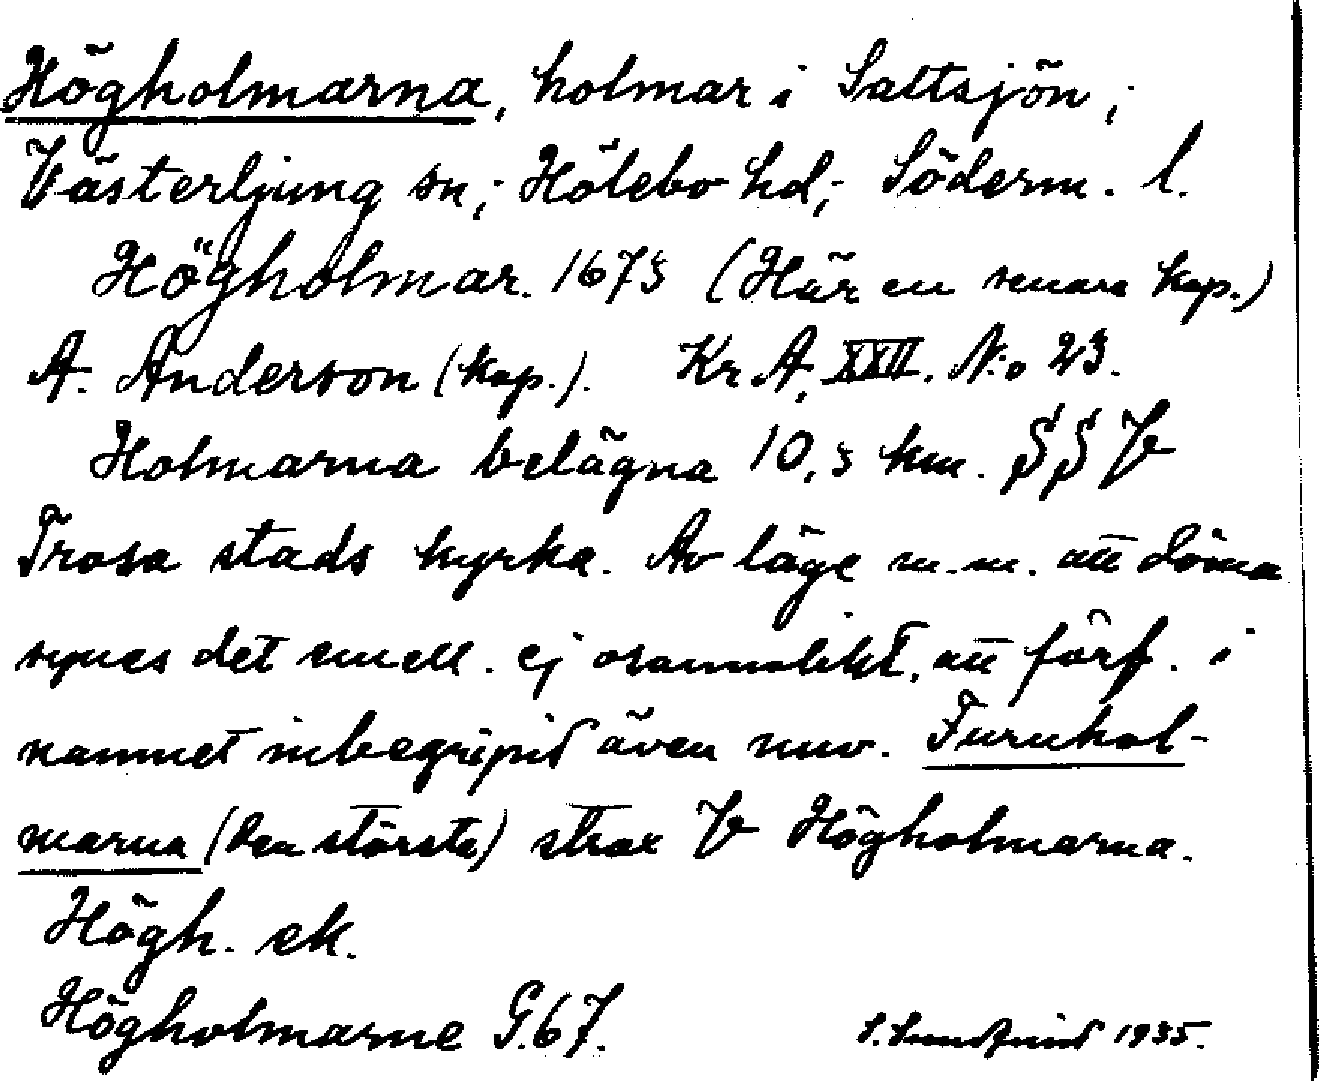 Högholmarna, holmar i Saltsjön,
Västerljung sn; Hölebo hd; Söderm. l.
Högholmar. 1673 (Här en senare kop.)
A. Anderson (kop.). Kr. A, XXII. No 23.
Holmarna belägna 10,5 km. SSV
Trosa stads kyrka. Av läge m.m. att döma
synes det emell. ej osannolikt, att förf. i
namnet inbegripit även nuv. Furuhol-
marna (den största) strax V Högholmarna.
Högh. ek.
Högholmarne G.67. 1935.